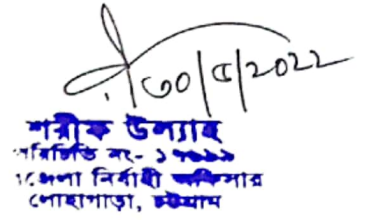 ৩০/৫/2022
শরীফ উল্যাহ
পরিচিতি নং-
উপজেলা নির্বাহী অফিসার
লোহাগাড়া, চট্টগ্রাম